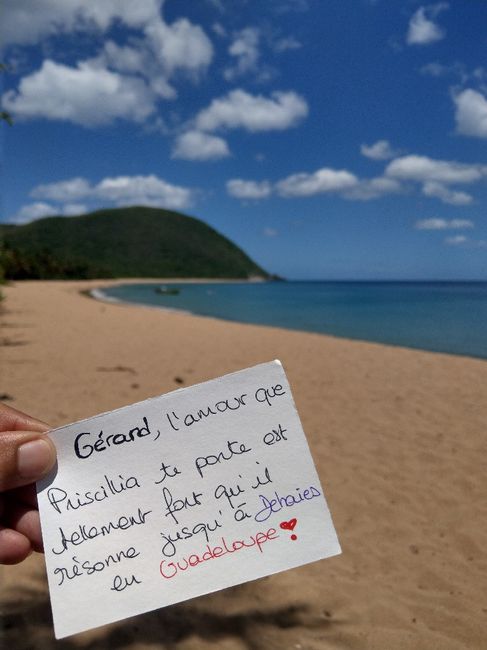 Gérard, l'amour que
Priscillia te porte est
tellement fort qu'il
résonne jusqu'à Dehaies
en Guadeloupe